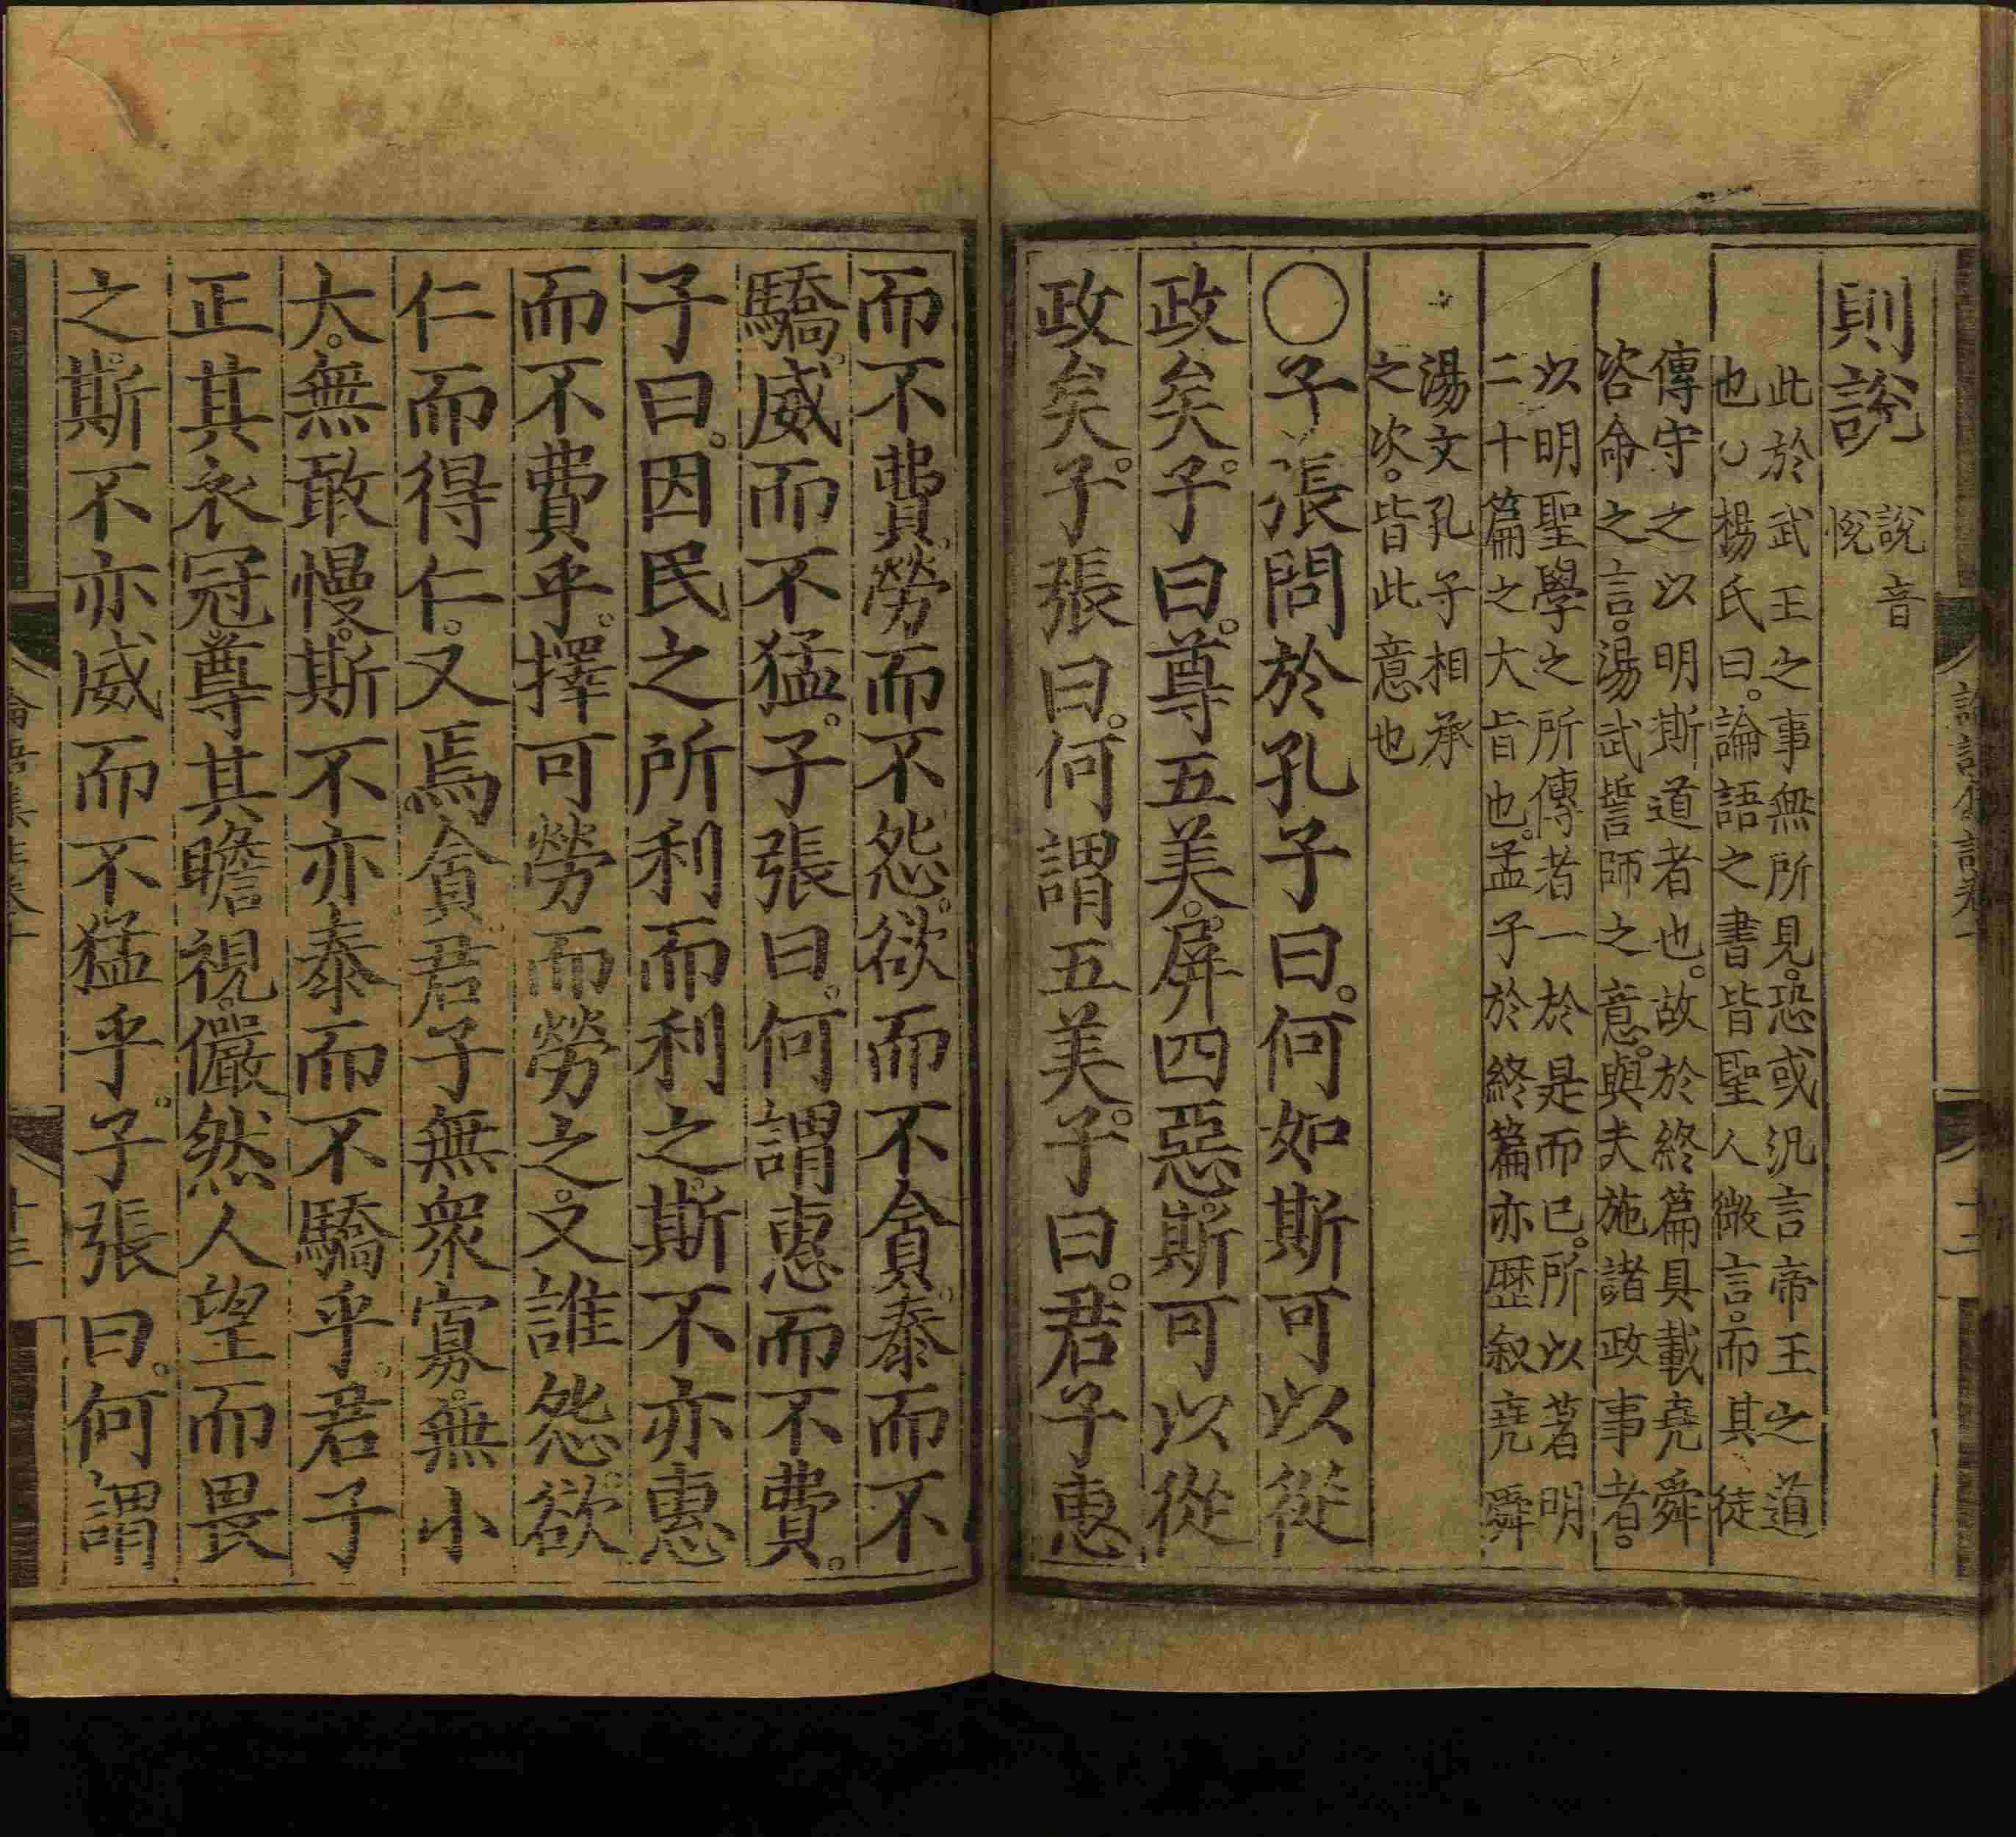 則說說音
悅
此於武王之事無所見。恐或汎言帝王之道
也○楊氏曰。論語之書皆聖人微言。而其徒
傳守之以明斯道者也。故於終篇具載堯舜
咨命之言。湯武誓師之意。與夫施諸政事者。
以明聖學之所傳者一於是而已。所以著明
二十篇之大旨也。孟子於終篇亦歷叙堯舜
湯文孔子相承
之次。皆此意也
○子張問於孔子曰。何如斯可以從
政矣。子曰。尊五美。屏四惡。斯可以從
政矣。子張曰。何謂五美。子曰。君子惠
而不費。勞而不怨。欲而不貪。泰而不
驕。威而不猛。子張曰。何謂惠而不費。
子曰。因民之所利而利之。斯不亦惠
而不費乎。擇可勞而勞之。又誰怨。欲
仁而得仁。又焉貪。君子無衆寡。無小
大。無敢慢。斯不亦泰而不驕乎。君子
正其衣冠尊其瞻視。儼然人望而畏
之。斯不亦威而不猛乎。子張曰。何謂
十二
論語集註卷十
十三